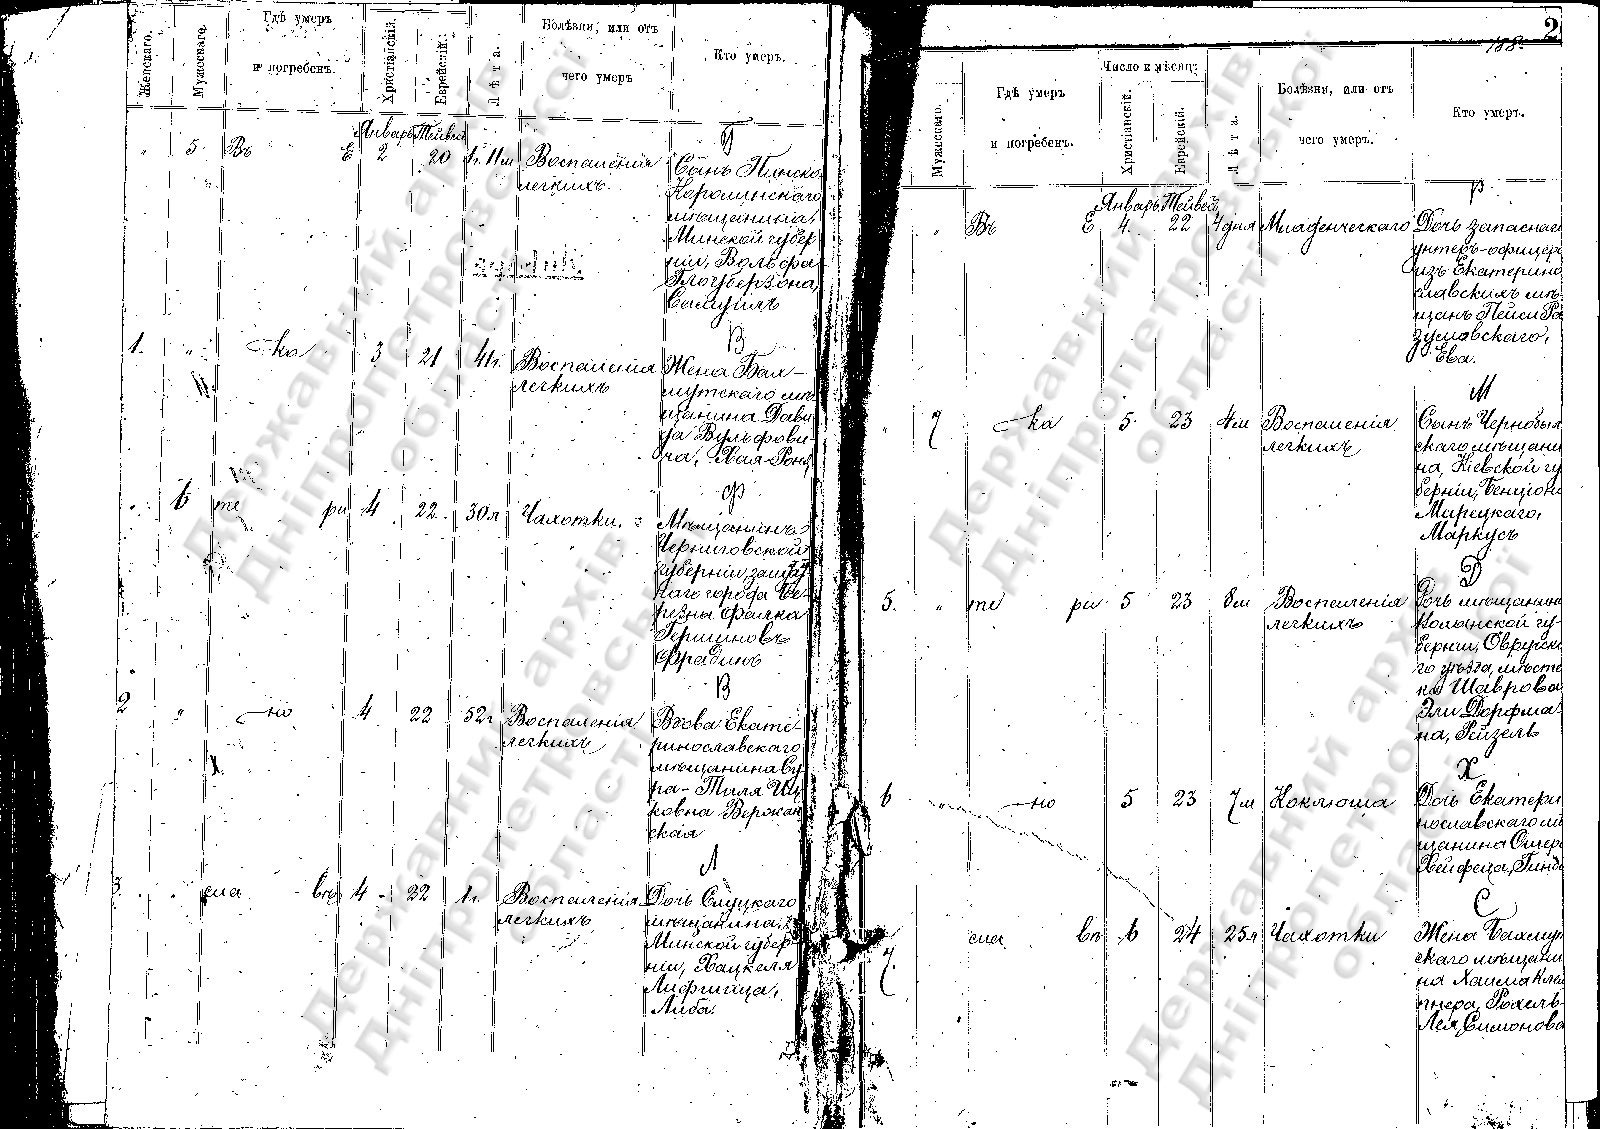 Женскаго.
Мужескаго.
Гдѣ умеръ
и погребенъ.
Христіанскій.
Еврейскій.
Лѣта.
Болѣзни, или отъ
чего умеръ
Кто умеръ.
Январь Тейвесъ
„ 5. Въ Е 2 20 1г. 11м Воспаленія
легкихъ.
Сынъ Пинско
Каролинскаго
мѣщанина,
Минской губер
ніи, Вольфа
Глоуберзона,
Самуилъ
1. „ ка 3 21 41г. Воспаленія
легкихъ
В
Жена Бах-
мутскаго мѣ
щанина Дави
да Вульфови-
ча, Хая-Роня
6 те ри 4 22 30л Чахотки.
Ф
Мѣщанинъ
Черниговской
губерніи, заштат
наго города Бе-
резны Файчка
Гершиновъ
Фрадинъ
2 „ но 4 22 52г Воспаленія
легкихъ
В
Вдова Екате-
ринославскаго
мѣщанина Су
ра-Тиля Иц
ковна Вержан
ская
3. сла въ 4 22 1г. Воспаленія
легкихъ
Л
Дочь Слуцкаго
мѣщанина,
Минской губер
ніи, Хацкеля
Лифшица,
Либа.
2
188.
Мужескаго.
Гдѣ умеръ
и погребенъ.
Число и мѣсяцъ
Христіанскій.
Еврейскій.
Лѣта.
Болѣзни, или отъ
чего умеръ.
Кто умеръ.
Январь Тейвесъ
„ Въ Е 4. 22 4 дня Младенческаго
Р
Дочь запаснаго
унтеръ-офицера
изъ Екатерино
славскихъ мѣ-
щанъ Пейси Ра
зумовскаго,
Ева.
7 ка 5 23 4м Воспаленія
легкихъ
М
Сынъ Чернобыл
скаго мѣщани
на, Кіевской гу
берніи, Бенціона
Мирецкаго,
Маркусъ
5. „ те ри 5 23 8м Воспаленія
легкихъ
Д
Дочь мѣщанина
Волынской гу-
берніи, Овручска
го уѣзда, мѣсте
ка Шаврова
Эли Дорфма
на, Рейзель
6 „ но 5 23 7м Коклюша
Х
Дочь Екатери
нославскаго мѣ
щанина Ошера
Хейфеца, Гинда
7. сла въ 6 24 25л Чахотки
С
Жена Бахмут
скаго мѣщани
на Хаима Клей
пнера, Рохель-
Лея Симонова
Державний архів
Дніпропетровської
області